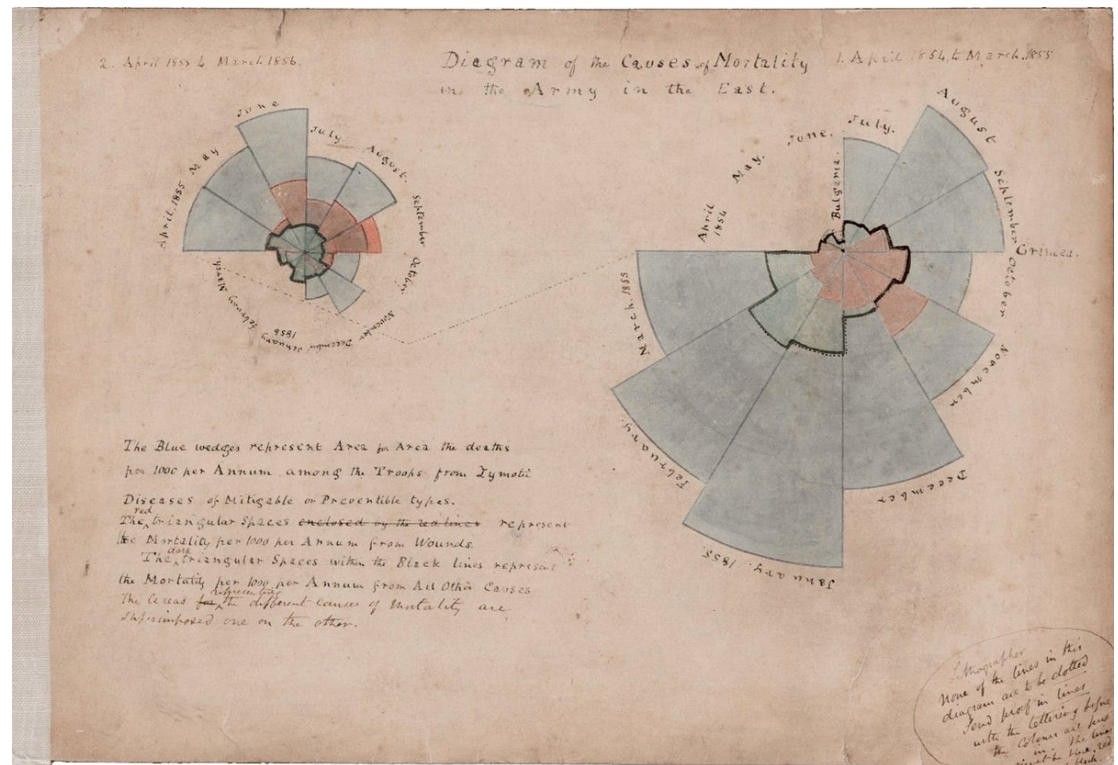 2. April 1855 to March 1856.
Diagram of the Causes of Mortality
in the Army in the East.
1. April 1854, to March. 1855
June
July
August.
September
October
November
December
January
1856
February
March
April. 1855
May
April
1854
May.
June.
July.
Bulgaria.
August
September
Crimea.
October
November
December
January. 1855.
February.
March. 1855
The Blue wedges represent Area for Area the deaths
per 1000 per Annum among the Troops from Zymotic
Diseases of Mitigable or Preventible types.
The red triangular Spaces enclosed by the red lines represent
the Mortality per 1000 per Annum from Wounds.
The dark triangular Spaces within the Black lines represent
the Mortality per 1000 per Annum from All Other Causes
The Areas for representing the different causes of Mortality are
superimposed one on the other.
Lithographer
None of the lines in this
diagram are to be dotted
Send proof in lines
with the lettering before
the colours are
in. The lines